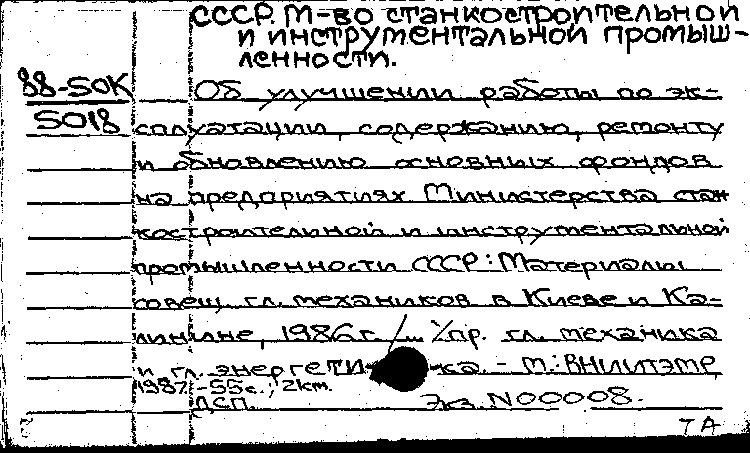 СССР. М-во станкостроительной
и инструментальной промыш-
ленности.
88-5ОК
5018
Об улучшении работы по эк-
сплуатации, содержанию, ремонту
и обновлению основных фондов
на предприятиях Министерства стан
костроительной и инструментальной
промышленности СССР: Материалы
совещ. гл. механиков в Киеве и Ка-
линине, 1986 г. /... Упр. гл. механика
и гл. энергетика. - М.: ВНИИТЭМР,
1987. - 55 с.; 2 см.
ДСП. Экз. N00008.
ТА